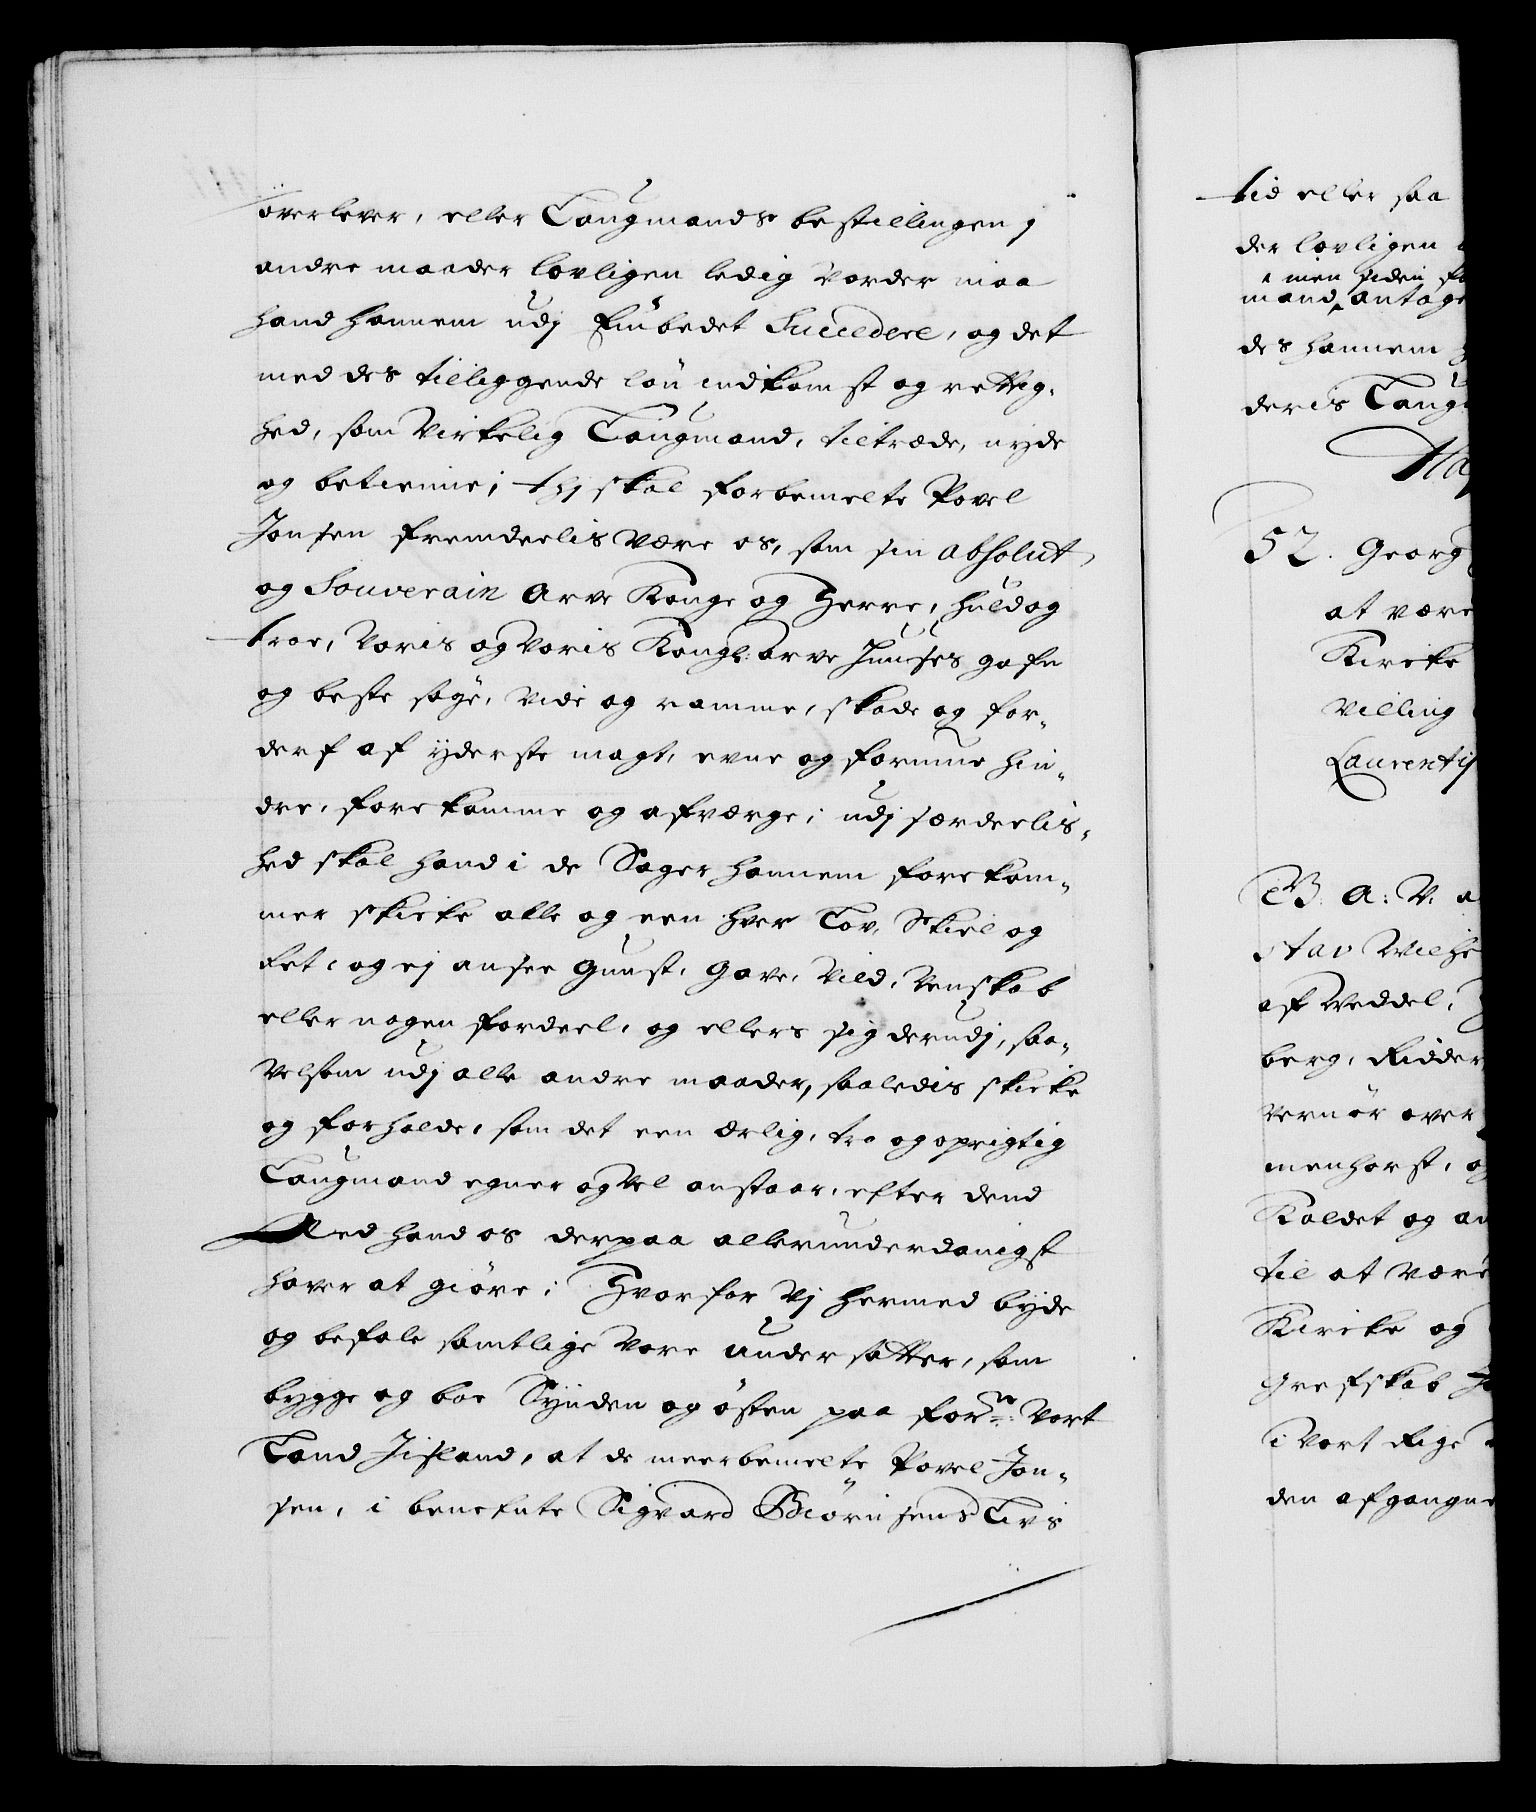 overlever, eller Laugmands bestillingen j
andre maader lovligen ledig vorder maa
hand hannem udj Embedet Succedere, og det
med des tilliggende løn indkomst og rettig-
hed, som virkelig Laugmand, tiltræde, nyde
og betienne; thj skal forbemelte Povel
Jonsen fremdeelis være os, som sin absolut
og Souverain Arve Konge og Herre, huld og
troe, Voris og Voris Kongl: arve Huuses gafn
og beste søge, vide og ramme, skade og for-
derf af yderste magt, evne og formue hin-
dre, forekomme og afværge; udj særdeelis-
hed skal hand i de Sager hannem forekom-
mer skicke alle og een hver Lov, Skiel og
Ret, og ej ansee gunst, gave, vild, venskab
eller nogen fordeel, og ellers sig derudj, saa-
velsom udj alle andre maader, saaledis skicke
og forholde, som det een ærlig, tro og oprigtig
Laugmand egner og vel anstaar, efter dend
Æed hand os derpaa allerunderdanigst
haver at giøre; Hvorfor Vj hermed byde
og befale samtlige Vore undersatter, som
bygge og boe Synden og østen paa forne: Vort
Land Jisland, at de meerbemelte Povel Jon-
sen, i benefnte Sigvard Biørnsens Livs
tid eller saa
der lovligen
men siden
mand antage
des hannem
deris Laug
52. Georg
at være
Kircke
Villing
Laurentij
G. A: V. a
stav Wilhe
af Weddel,
berg, Ridder
vernør over
menhorst, og
Kaldet og an
til at være
Kircke og
Grefskab
i Vort Rige
den afgangne